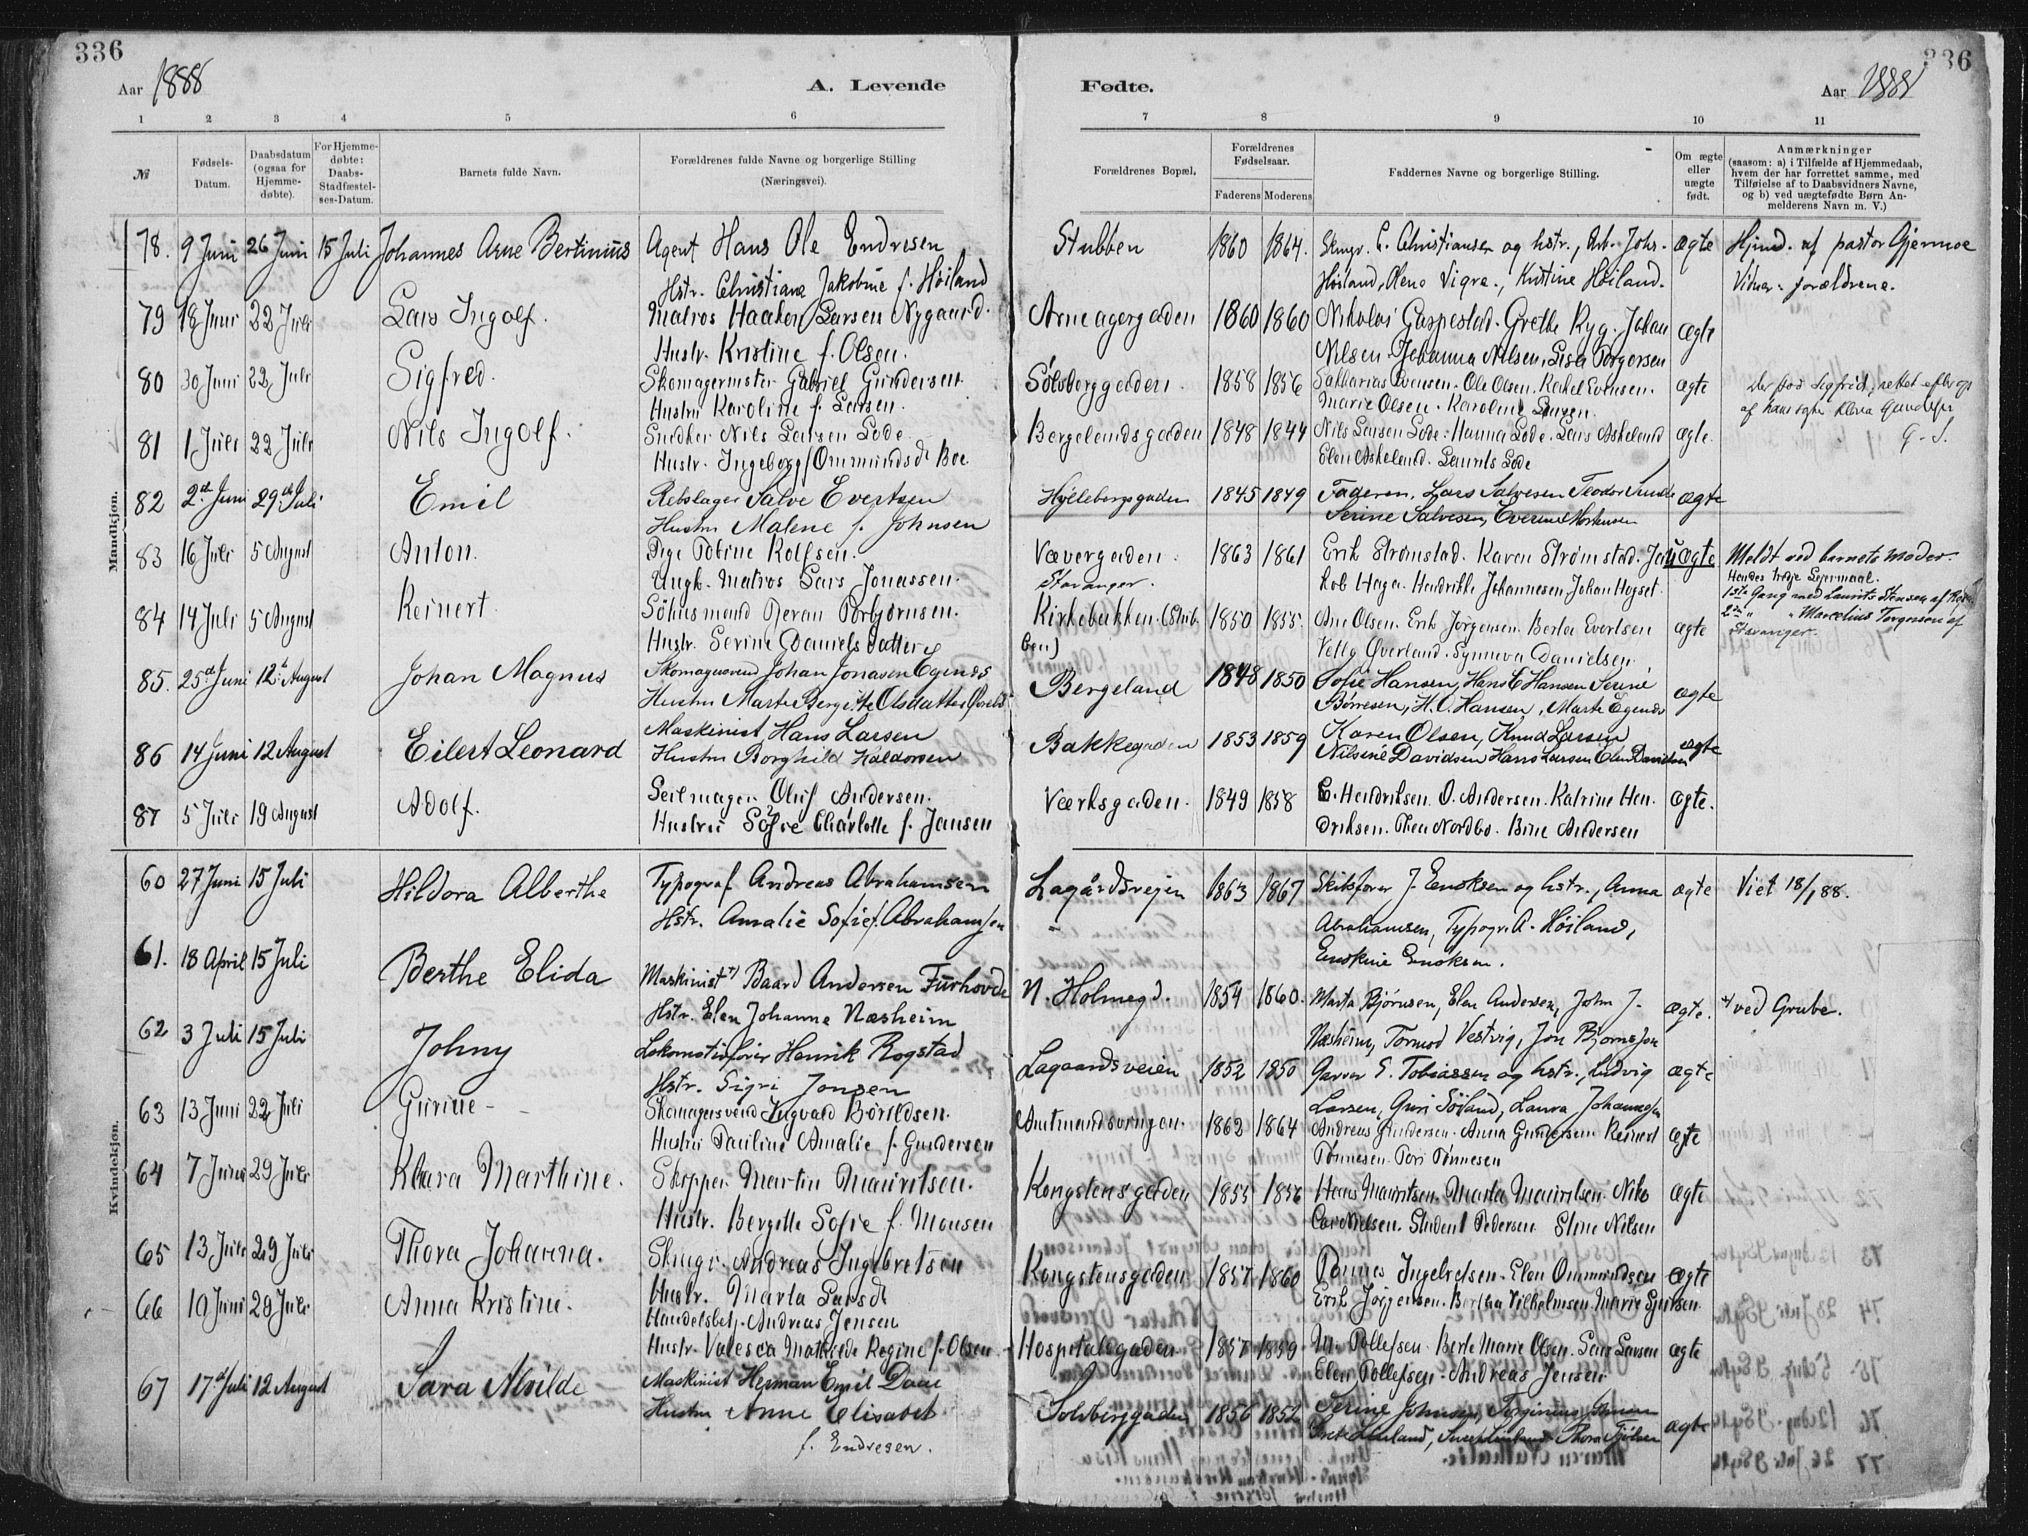 336
Aar 1888
A. Levende
1 2 3 4 5 6
№
Fødsels-Datum.
Daabsdatum (ogsaa for Hjemme-døbte).
For Hjemme-døbte: Daabs-Stadfæstel-ses-Datum.
Barnets fulde Navn.
Forældrenes fulde Navne og borgerlige Stilling
(Næringsvei).
Mandkjøn.
78. 9 Juni 26 Juni 15 Juli Johannes Arne Bertinius Agent Hans Ole Endresen
Hstr. Christiane Jakobine f. Høiland
79 18 Juni 22 Juli Lars Ingolf. Matros Haaken Larsen Nygaard.
Hustr. Kristine f. Olsen.
80 30 Juni 22 Juli Sigfred. Skomagermster Gabriel Gundersen
Hustru Karoline f. Larsen.
81 1 Juli 22 Juli Nils Ingolf. Snedker Nils Larsen Lode
Hustr. Ingeborg Ommundsdt Boe
82 2det Juni 29de Juli Emil Rebslager Salve Evertsen
Hustru Malene f. Johnsen
83 16 Juli 5 August Anton. Pige Tobine Rolfsen.
Ungk. Matros Lars Jonassen.
84 14 Juli 5 August Reinert. Torbjørnsen.
Hustr. Serine Danielsdatter
85. 25de Juni 12te August Johan Magnus Skomagersvend Johan Jonasen Egenes
Hustru Marte Bergitte Olsdatter
86 14 Juni 12 August Eilert Leonard Maskinist Hans Larsen
Hustru Borghild Haldorsen
87 5 Juli 19 August Adolf. Seilmager Oluf Andersen.
Hustru Sofie Charlotte f. Jansen
Kvindekjøn.
60 27 Juni 15 Juli Hildora Alberthe Typograf Andreas Abrahamsen
Hstr. Amalie Sofie f. Abrahamsen
61. 18 April 15 Juli Berthe Elida Maskinist *) Baard Andersen Furhovde
Hstr. Elen Johanne Næsheim
62 3 Juli 15 Juli Johny Lokomotivfører Henrik Rogstad
Hstr. Sigri Jonsen
63 13 Juni 22 Juli Gurine - - Skomagersvend Ingvald Børildsen.
Hustru Pauline Amalie f. Gundersen
64 7 Juni 29 Juli Klara Marthine. Skipper Martin Mauritsen.
Hustr. Bergitte Sofie f. Monsen
65 13 Juli 29 Juli Thora Johanna. Skmgr. Andreas Ingebretsen
Hustr. Marta Larsdt
66 10 Juni 29 Juli Anna Kristine. Handelsbetj. Andreas Jensen
Hustr. Valesca Mathilde Regine f. Olsen
67 17de Juli 12 August Sara Alvilde Maskinist Herman Emil Daae
Hustru Anne Elisabet
f. Endresen.
336
Fødte.
Aar 1888
7 8 9 10 11
Forældrenes Bopæl.
Forældrenes Fødselsaar.
Faderens Moderens
Faddernes Navne og borgerlige Stilling.
Om ægte eller uægte født.
Anmærkninger
(saasom: a) i Tilfælde af Hjemmedaab, hvem der har forrettet samme, med Tilføielse af to Daabsvidners Navne, og b) ved uægtefødte Børn An-melderens Navn m. V.)
Stubben 1860 1864. Skmgr. C. Christiansen og hstr., Arb. Johs. ægte Hjmd. af pastor Gjermoe
Høiland, Olene Vigre., Kristine Høiland. Vidner: forældrene.
Arneagergaden 1860 1860 Nikolai Gaspestad. Grethe Ryg. Johan ægte
Nilsen. Johanna Nilsen. Lisa Torgersen
Sølvberggaden. 1858 1856 Sakkarias Svensen. Ole Olsen. Rakel Svensen. ægte Der stod Sigfrid, rettet efter opg
Marie Olsen. Karoline Larsen. af hans søster Klara Gundersen
Bergelandsgaden 1848 1844 Nils Larsen Lode. Hanna Lode. Lars Askeland ægte. G. S.
Elen Askeland. Laurits Lode
Hyllebergsgaden 1845 1849 Faderen, Lars Salvesen Teodor Sunde ægte
Serine Salvesen, Everine Mortensen
Vævergaden. 1863 1861 Erik Strømstad. Karen Strømstad. Ja- uægte Meldt ved barnets moder.
Stavanger. kob Haga. Hendrikke Johannesen. Johan Høgset. Hendes tredje Leiermaal.
1ste Gang med Laurits Stensen af
Kirkebakken (Stub- 1850 1855. Ane Olsen. Erik Jørgensen. Berta Evertsen ægte 2den " " Marcelius Torgersen af
ben) Øverland. Synneva Danielsen. Stavanger.
Bergeland 1848 1850 Sofie Hansen, Hans C Hansen Serine ægte
Børresen, H. C. Hansen, Marte Egenes
Bakkegaden 1853 1859 Karen Olsen, Knud Larsen ægte
Nilsine Davidsen Hans Larsen Elen Davidsen
Værksgaden. 1849 1858 E. Hendriksen. O. Andersen. Katrine Hen- ægte.
driksen. Thea Nordbo. Bine Andersen
Lagårdsvejen 1863 1867 Skibsfører J. Enoksen og hstr., Anna ægte Viet 18/1 88.
Abrahamsen, Typogr. A. Høiland,
Enokine Enoksen.
N. Holmegd. 1854 1860. Marta Bjørnsen, Elen Andersen, John J. ægte. *) ved Grube.
Næsheim, Tormod Vestvig, Jon Bjørnsen
Lagaardsveien 1852 1850 Garver S. Tobiassen og hstr., Ludvig ægte
Larsen, Guri Søiland, Laura Johannesen
Amtmandsvingen. 1862 1864 Andreas Gundersen. Anna Gundersen Reinert ægte
Tønnesen. Tori Tønnesen
Kongstensgaden 1855 1856 Hans Mauritsen. Marta Mauritsen. Niko- ægte
Nielsen. Student Pedersen Stine Nilsen
Kongstensgaden 1857 1860 Tønnes Ingebretsen. Elen Ommundsen ægte
Erik Jørgensen. Bertha Vilhelmsen. Marie
Hospitalsgaden 1857 1859 M. Tollefsen. Berte Marie Olsen. Larsen ægte
Elen Tollefsen. Andreas Jensen
Solvberggaden 1856 1852 Serine Johnsen, Torginius ægte
Thora Fjelsen